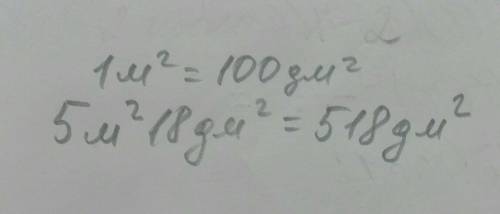 1м² = 100дм²
5м² 18дм² = 518дм²